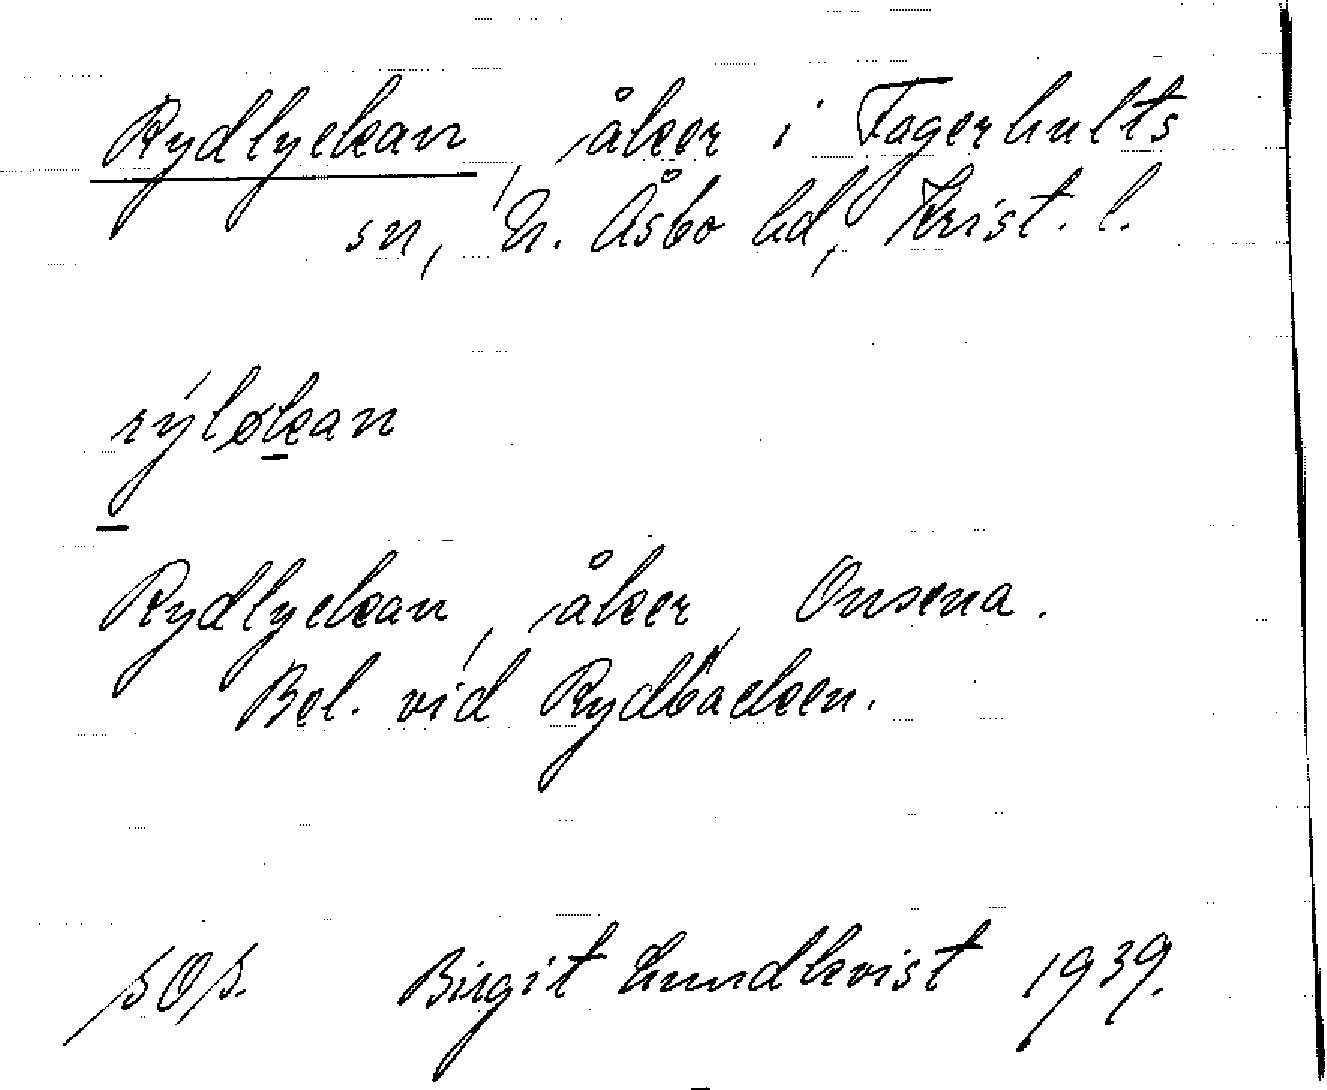 Rydlyckan, åker i Fagerhults
sn, N. Åsbo hd, Krist. l.
rýløkan
Rydlyckan, åker, Onsena.
Bel. vid Rydbacken.
SOS. Birgit Lundkvist 1939.